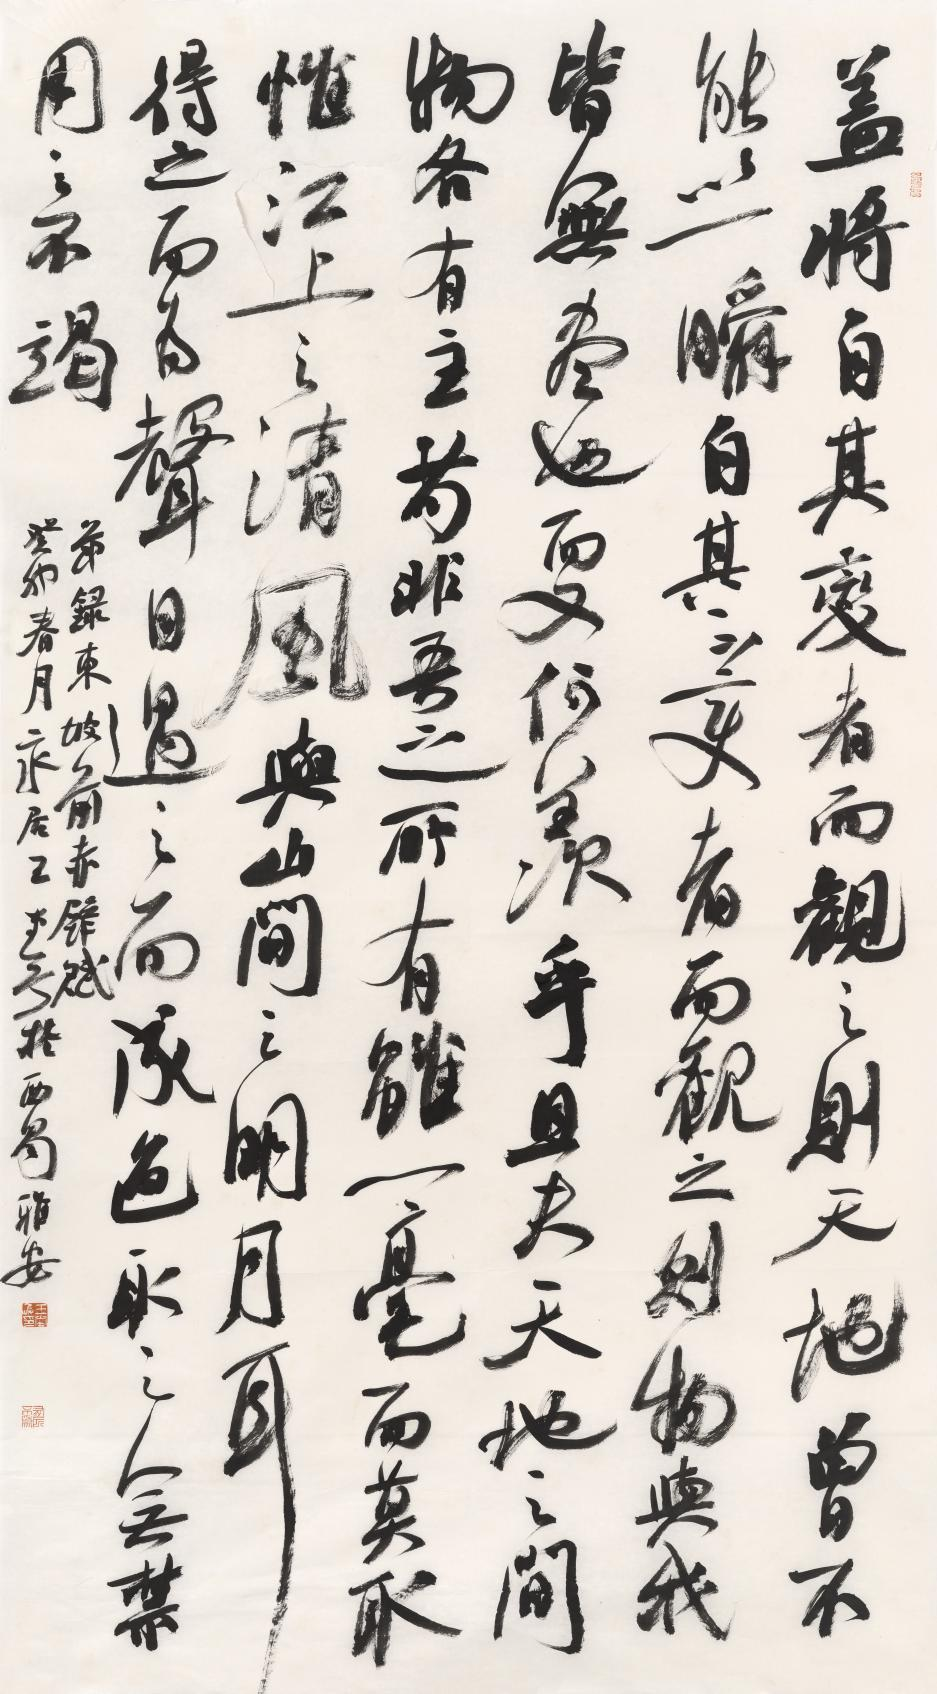 盖將自其變者而觀之則天地曾不
能以一瞬自其不變者而觀之則物與我
皆無盡也而又何羨乎且夫天地之間
物各有主苟非吾之所有雖一毫而莫取
惟江上之清風與山間之明月耳
得之而為聲目遇之而成色取之無禁
用之不竭
節錄東坡前赤壁賦
癸卯春月於西蜀雅安